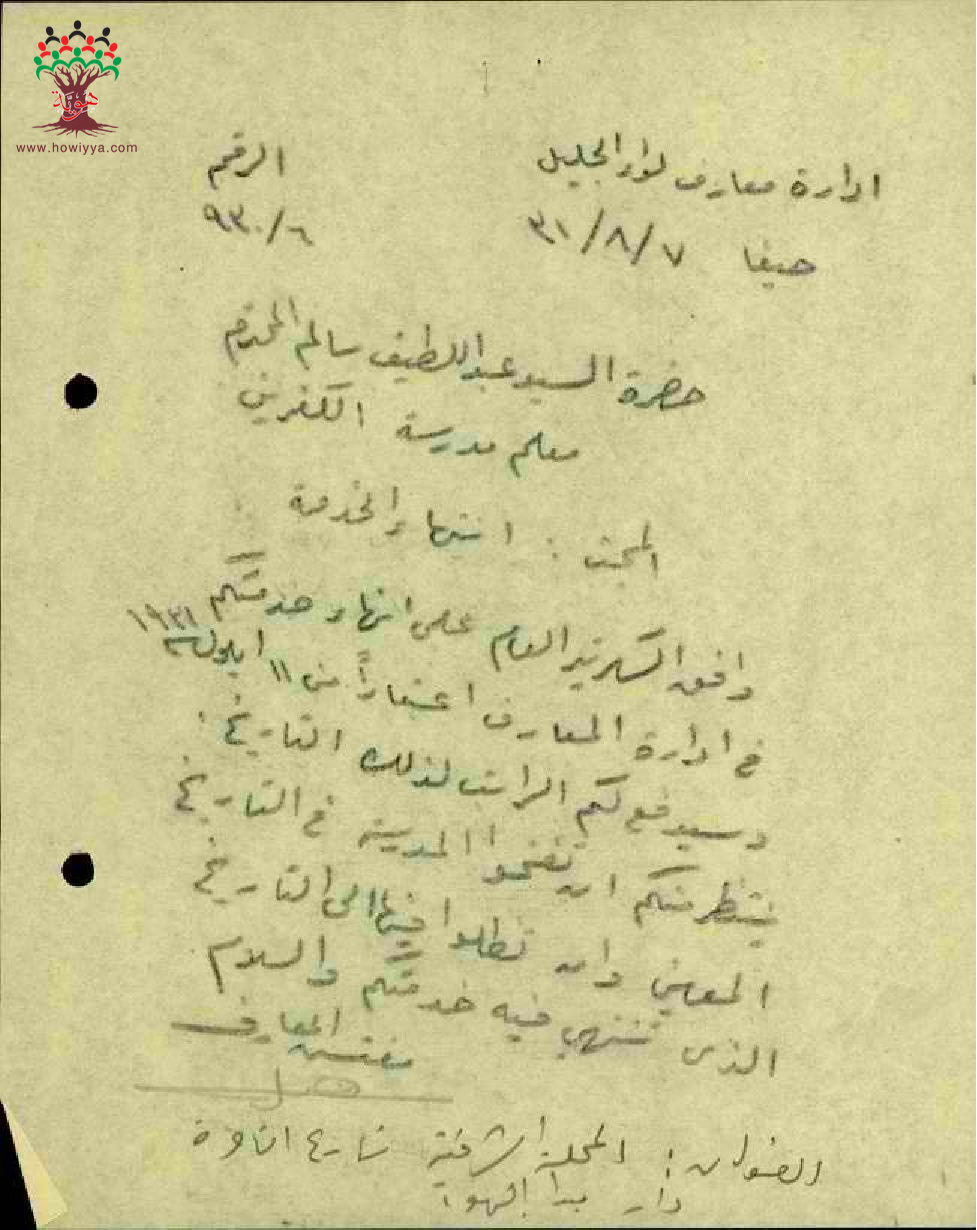 هوية
www.howiyya.com
ادارة معارف لواء الجليل الرقم
حيفا ٣١/٨/٧ ٩٣٠/٦
حضرة السيد عبد اللطيف سالم المحترم
معلم مدرسة الكفرين
المبحث : انتهاء الخدمة
وافق السكرتير العام على انهاء خدمتكم
في ادارة المعارف اعتباراً من ١١ ايلول ١٩٣١
وسيدفع لكم الراتب لذلك التاريخ .
ينتظر منكم ان تفتحوا المدرسة في التاريخ
المعين وان تظلوا فيها الى التاريخ
الذي تنتهي فيه خدمتكم والسلام
مفتش المعارف
العنوان : المحلة الشرقية شارع الناصرة
دار